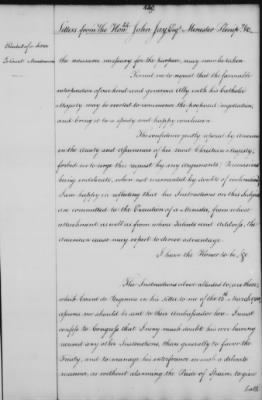 Letters from The Hon.ble John Jay Esq.r Minister Plenip.o &c.
the measures necessary for the purpose, may now be taken.
Permit me to request that the favorable
interposition of our kind and generous Ally with his Catholic
Majesty may be exerted to commence the proposed negotiation,
and bring it to a speedy and happy conclusion.
The confidence justly reposed by America
on the amity and assurances of his most Christian Majesty,
forbids me to urge this request by any arguments;
being indelicate, when not warranted by doubts of inclination,
I am happy in reflecting that his Instructions on this Subject
are committed to the Execution of a Minister, from whose
attachment as well as from whose Talents and Address, the
American cause may expect to derive advantage.
I have the Honor to be, &c
The Instructions above alluded to, are those,
which Count de Vergennes in his Letter to me of the 13.th March
assures me should be sent to their Ambassador here. I must
confess to Congress that I very much doubt his ever having
received any other Instructions, than generally to favor the
Treaty, and to manage his interference in such a delicate
manner, as without alarming the Pride of Spain, to give
both